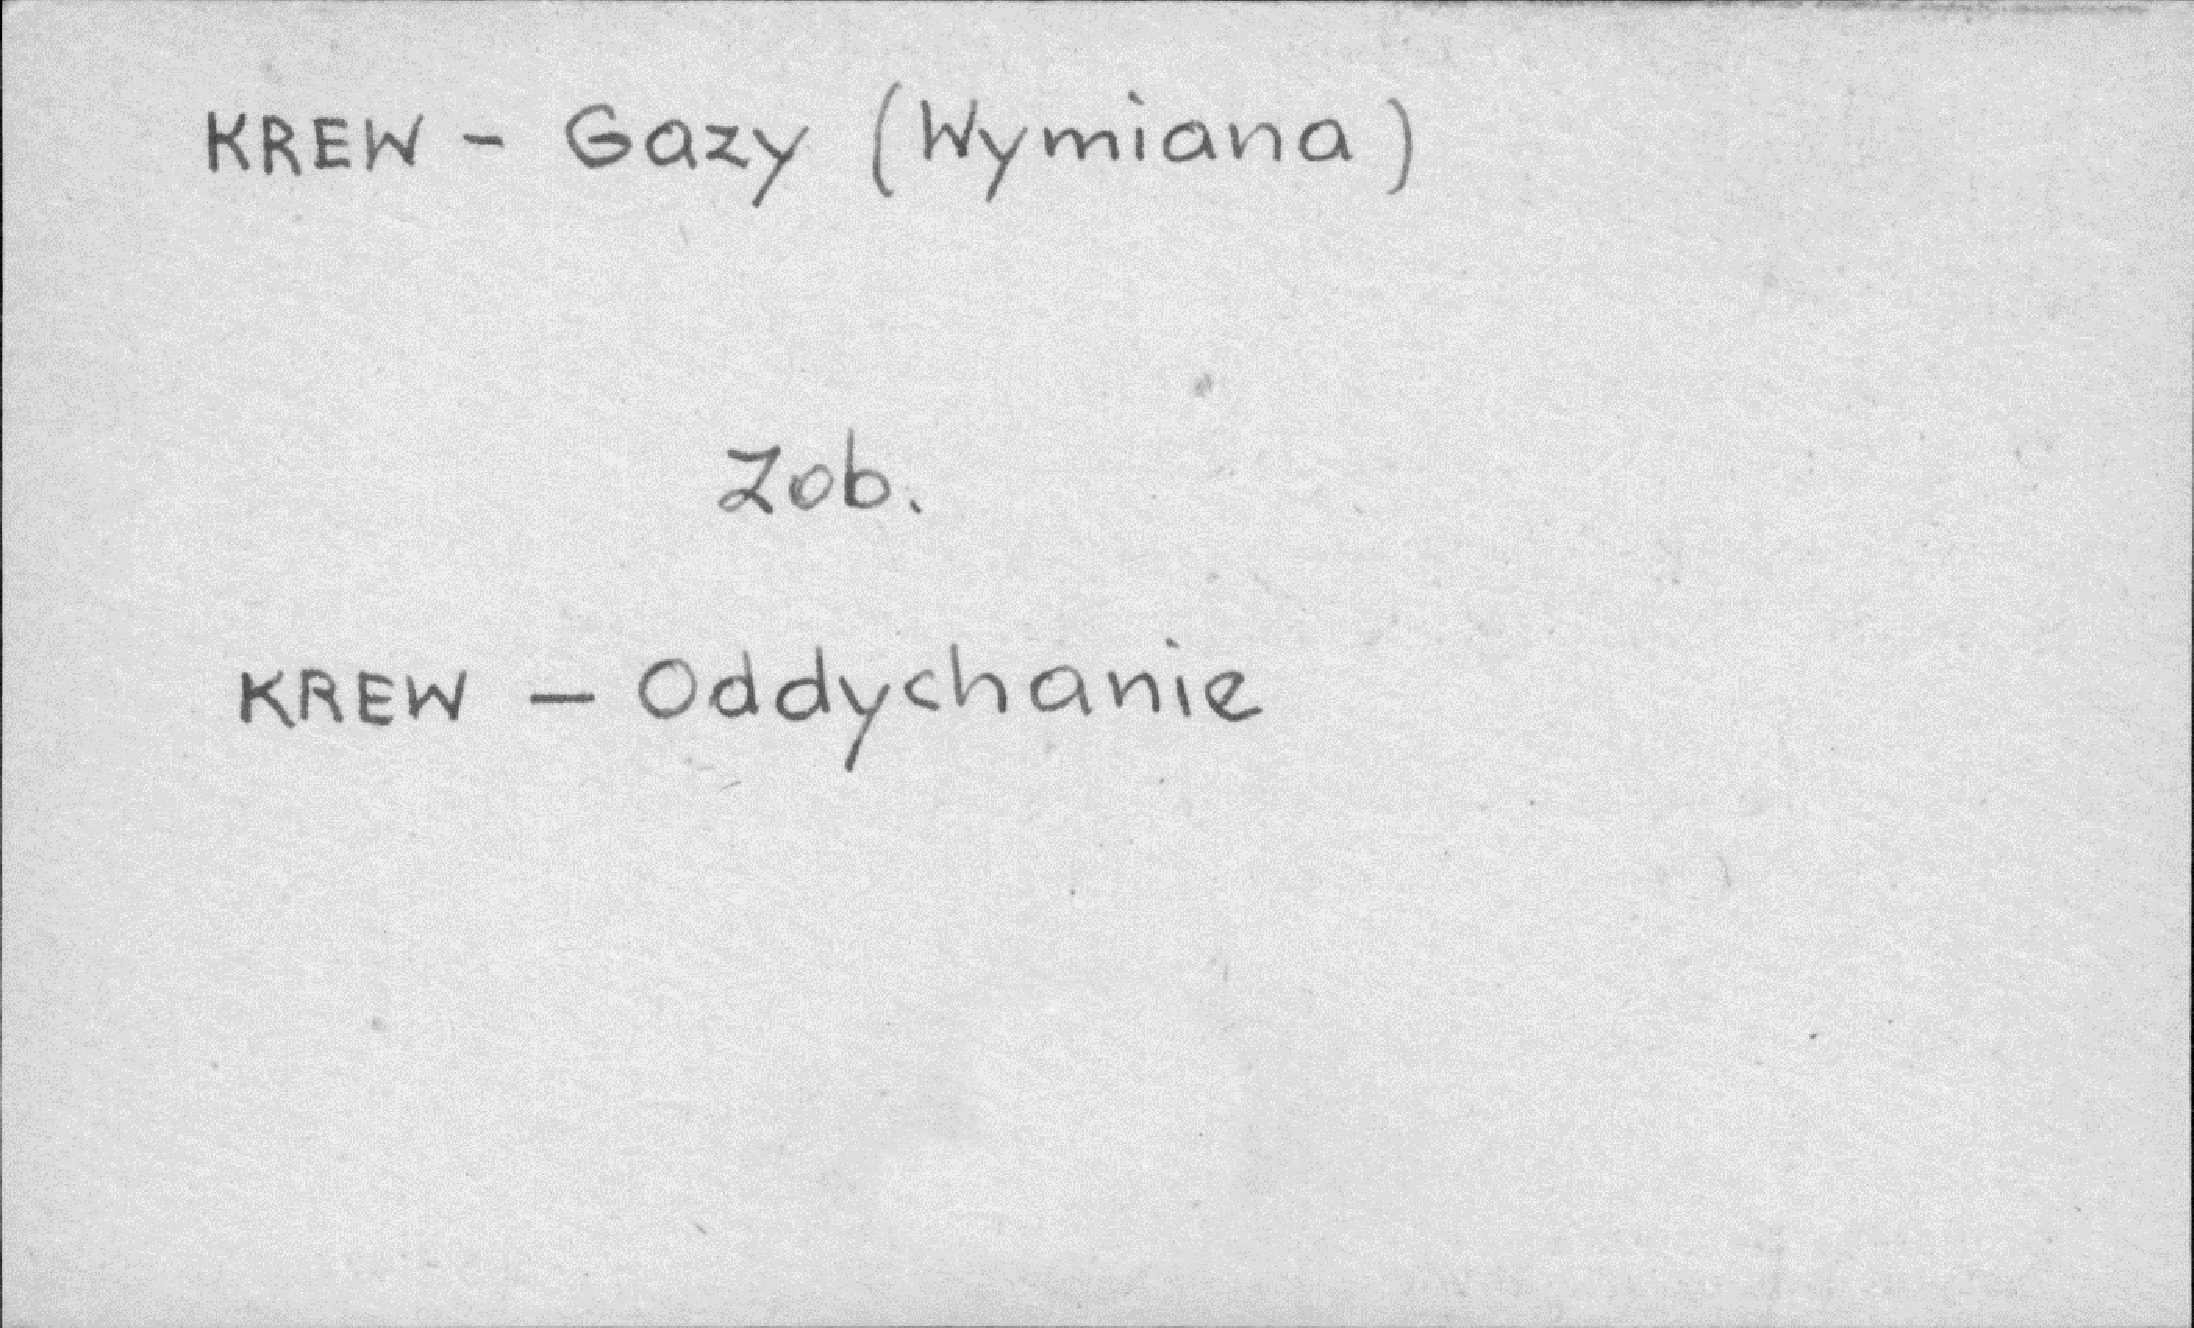 KREW - Gazy (Wymiana)
Zob.
KREW - Oddychanie